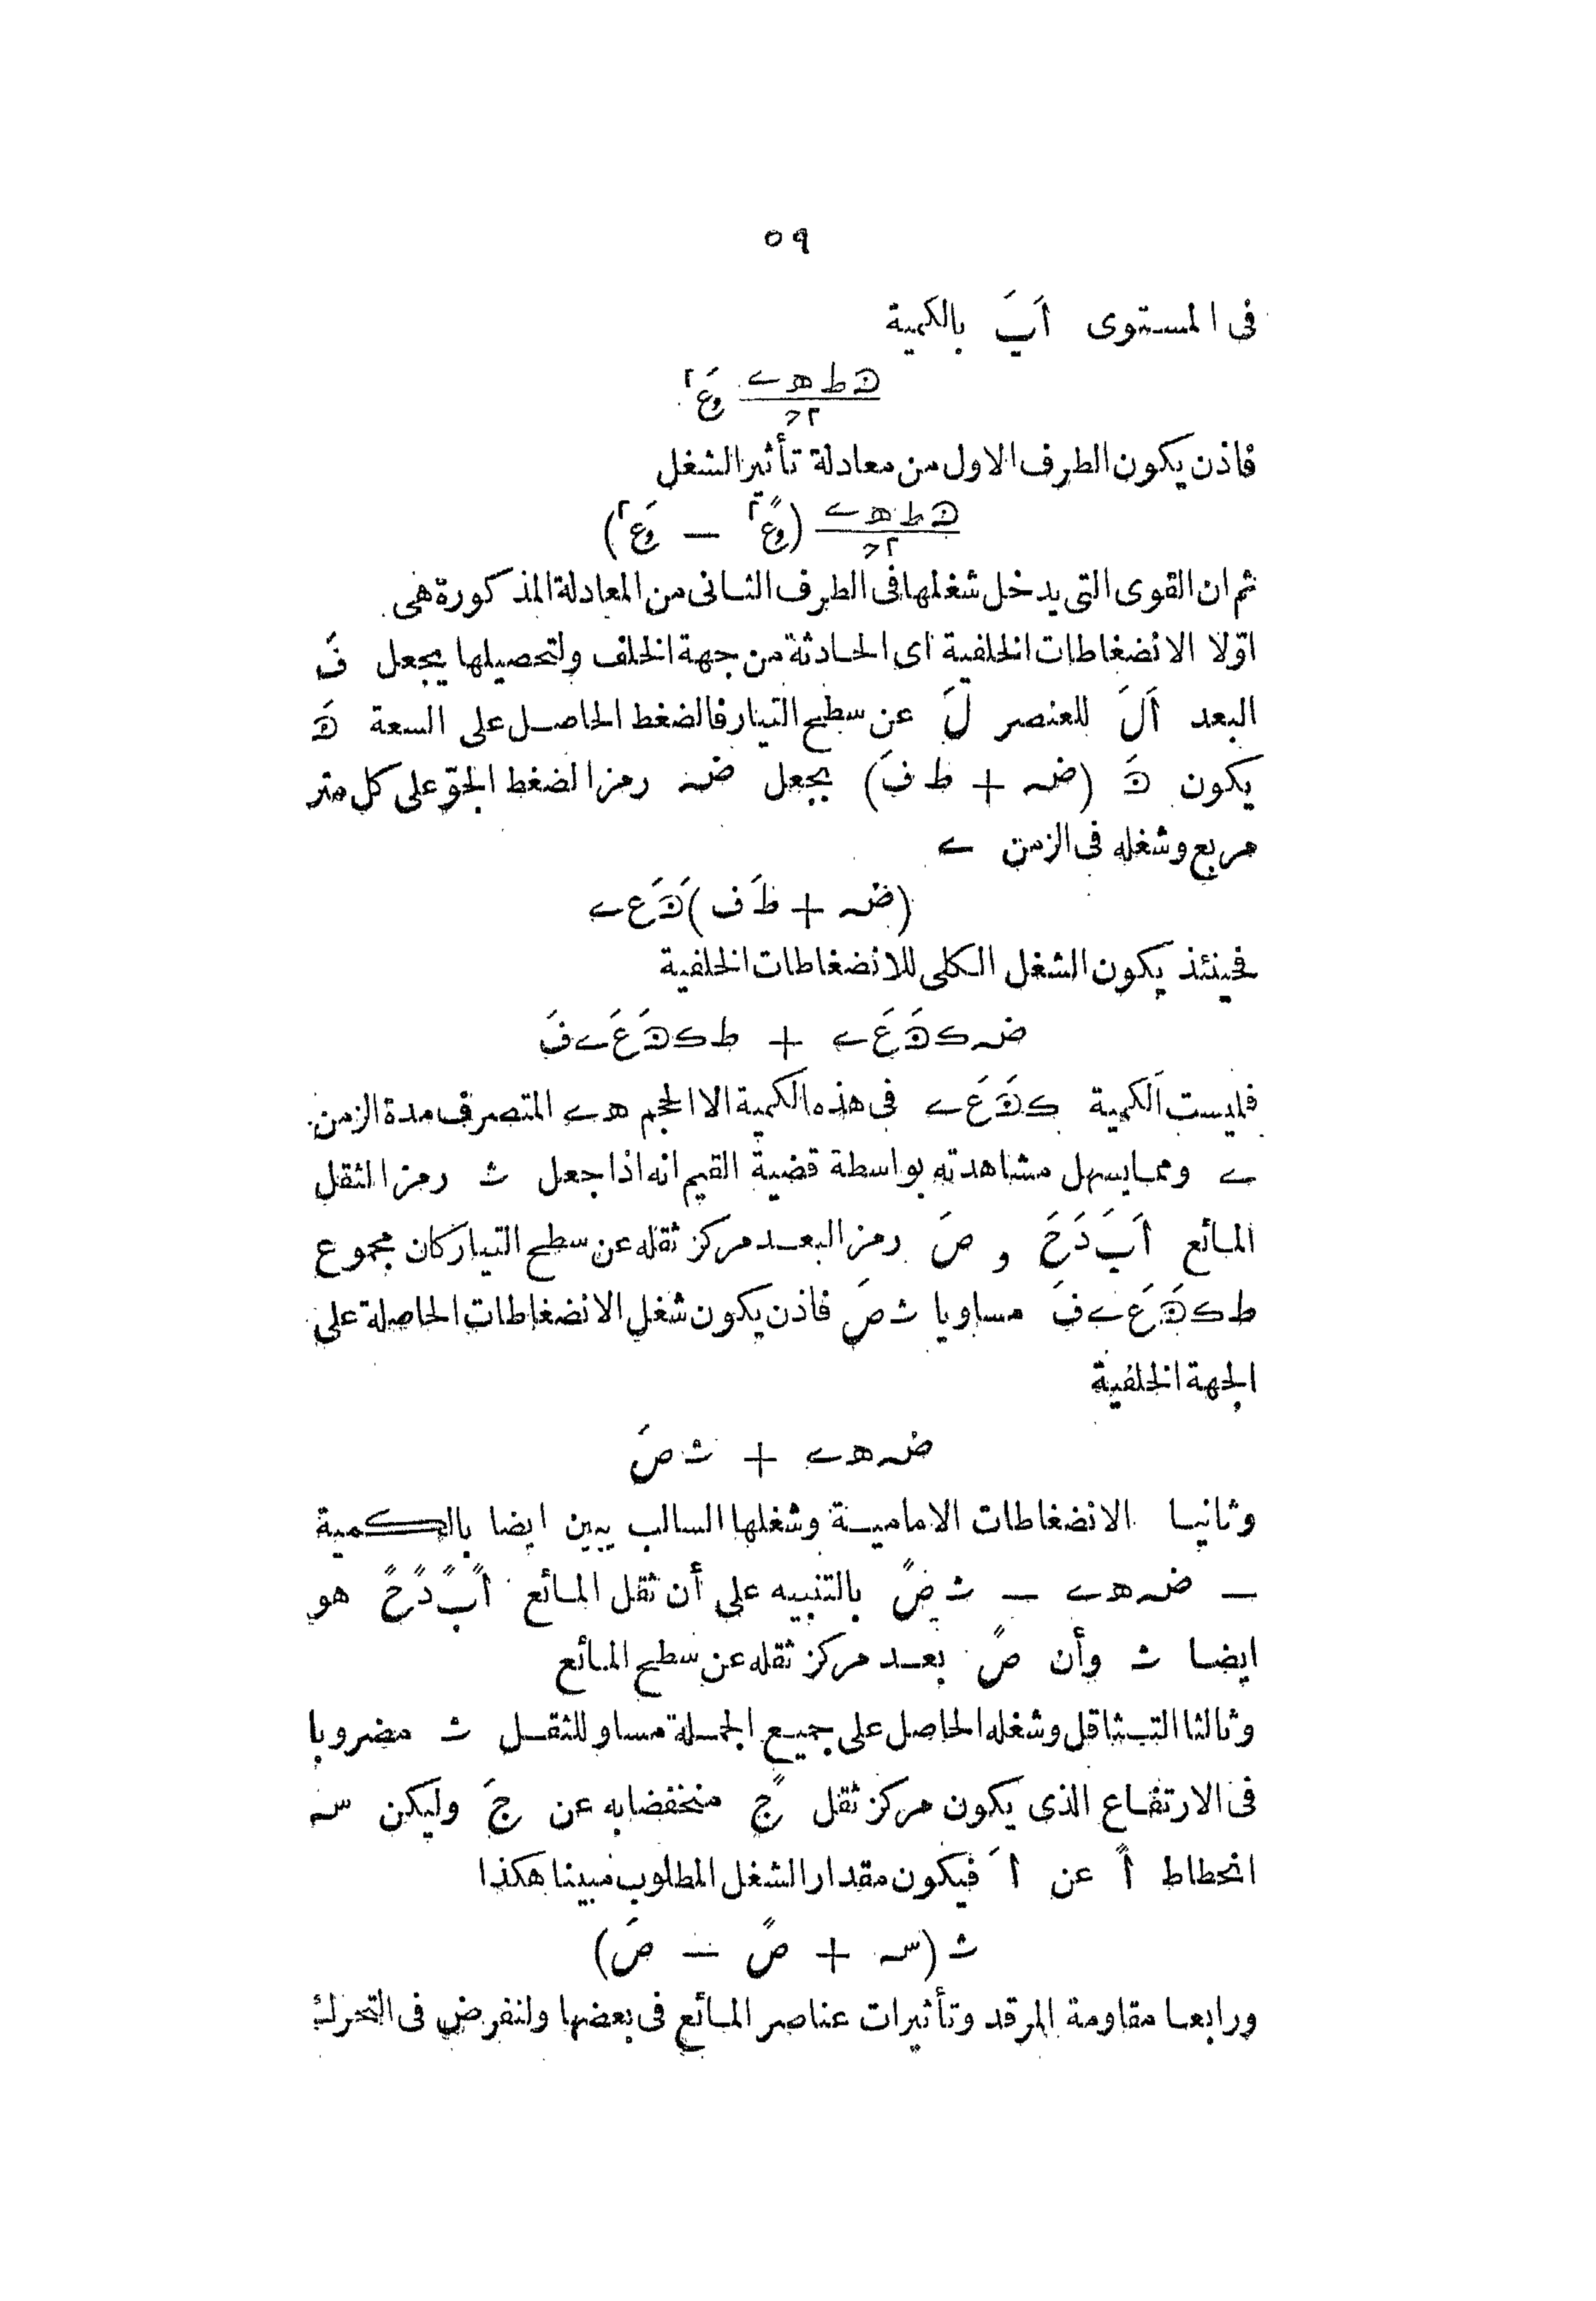 ٥٩
فى المستوى اَبَ بالكمية
ﻁ ﻫ ے وَع٢
٢ح
فاذن يكون الطرف الاول من معادلة تأثير الشغل
ﻁ ﻫ ے (وً ع٢ — وَ ع٢)
٢ح
ثم ان القوى التى يدخل شغلها فى الطرف الثانى من المعادلة المذكورة هى
اوّلا الانضغاطات الخلفية اى الحادثة من جهة الخلف ولتحصيلها يجعل فَ
البعد اَلَ للعنصر لَ عن سطح التيار فالضغط الحاصل على السعة
يكون (ضہ + ط فَ) بجعل ضہ رمز الضغط الجوّ على كل متر
مربع وشغله فى الزمن ے
(ضہ + ط فَ) عَ ے
فحينئذ يكون الشغل الكلى للانضغاطات الخلفية
ضہ ك عَ ے + ط ك عَ ے فَ
فليست الكمية ك عَ ے فى هذه الكمية الا الحجم ه ے المتصرف مدة الزمن
ے ومما يسهل مشاهدته بواسطة قضية القيم انه اذا جعل ث رمز الثقل
المائع اَ بَ دَ حَ و صَ رمز البعد مركز ثقله عن سطح التيار كان مجموع
ط ك عَ ے فَ مساويا ث صَ فاذن يكون شغل الانضغاطات الحاصلة على
الجهة الخلفية
ضہ ه ے + ث صَ
وثانيا الانضغاطات الامامية وشغلها السالب يبين ايضا بالكمية
— ضہ ه ے — ث صً بالتنبيه على أن ثقل المائع اً بً دً حً هو
ايضا ث وأن صً بعد مركز ثقله عن سطح المائع
وثالثا التثاقل وشغله الحاصل على جميع الجملة مساو للثقل ث مضروبا
فى الارتفاع الذى يكون مركز ثقل جً منخفضا به عن جَ وليكن سہ
انحطاط اً عن اَ فيكون مقدار الشغل المطلوب مبينا هكذا
ث (سہ + صً — صَ)
ورابعا مقاومة المرقد وتأثيرات عناصر المائع فى بعضها ولنفرض فى التحرك